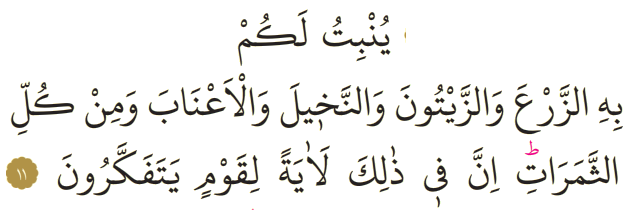 يُنْبِتُ لَكُمْ
بِهِ الزَّرْعَ وَالزَّيْتُونَ وَالنَّخ۪يلَ وَالْاَعْنَابَ وَمِنْ كُلِّ
الثَّمَرَاتِۜ اِنَّ ف۪ي ذٰلِكَ لَاٰيَةً لِقَوْمٍ يَتَفَكَّرُونَ ١١